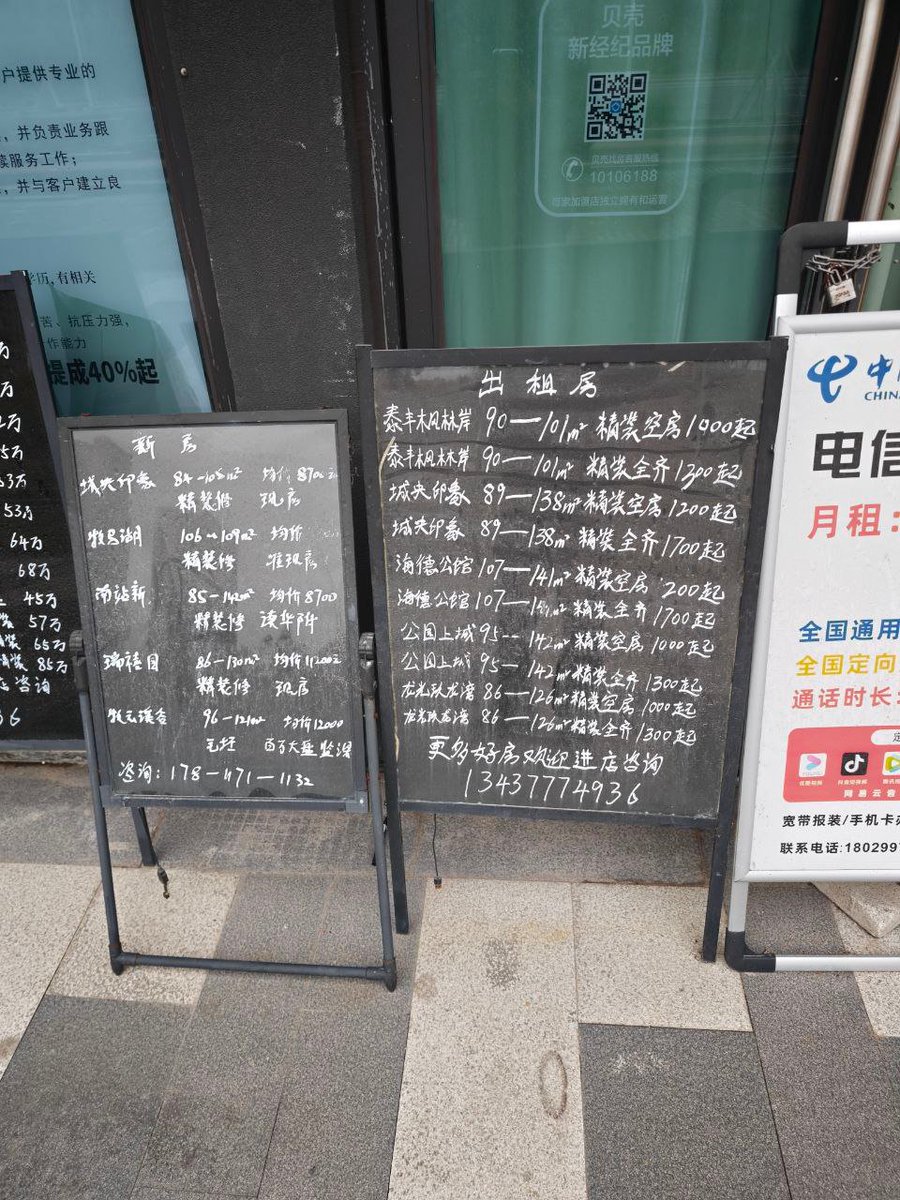 户提供专业的
，并负责业务跟
续服务工作；
，并与客户建立良
学历,有相关
苦、抗压力强，
作能力
提成40%起
贝壳
新经纪品牌
贝壳找房客服热线
10106188
每家加盟店独立拥有和运营
万
万
2万
5万
53万
53万
64万
68万
45万
装 57万
精装 65万
精装 85万
店咨询
36
新房
城央印象 84-108m² 均价8700元
精装修 现房
牧马湖 106-109m² 均价
精装修 准现房
南站新 85-142m² 均价8700
精装修 读华附
瑞禧园 86-130m² 均价11200元
精装修 现房
牧云溪谷 96-121m² 均价12000
毛坯 百万大盘
咨询：178-1171-1132
出租房
泰丰枫林岸 90—101m² 精装空房1000起
泰丰枫林岸 90—101m² 精装全齐1200起
城央印象 89—138m² 精装空房1200起
城央印象 89—138m² 精装全齐1700起
海德公馆 107—141m² 精装空房 200起
海德公馆 107—141m² 精装全齐1700起
公园上城 95--142m² 精装空房1000起
公园上城 95—142m² 精装全齐1300起
龙光玖龙湾 86—126m² 精装空房1000起
龙光玖龙湾 86—126m² 精装全齐1300起
更多好房欢迎进店咨询
13437774936
中
CHINA
电信
月租：
全国通用
全国定向
通话时长:
定
优酷视频 抖音短视频 腾讯视
网易云音
宽带报装/手机卡办
联系电话:180299